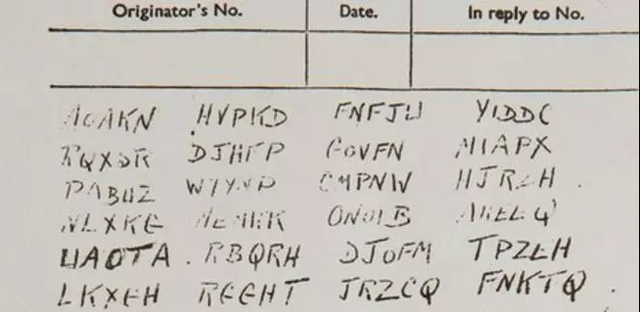 Originator's No. Date. In reply to No.
AOAKN HVPKD FNFJU YIDDC
RQXSR DJHFP GOVFN MIAPX
PABUZ WYYNP CMPNW HJRZH
NLXKG MEMKK ONOIB AKEEQ
UAOTA RBQRH DJOFM TPZEH
LKXGH RGGHT JRZCQ FNKTQ